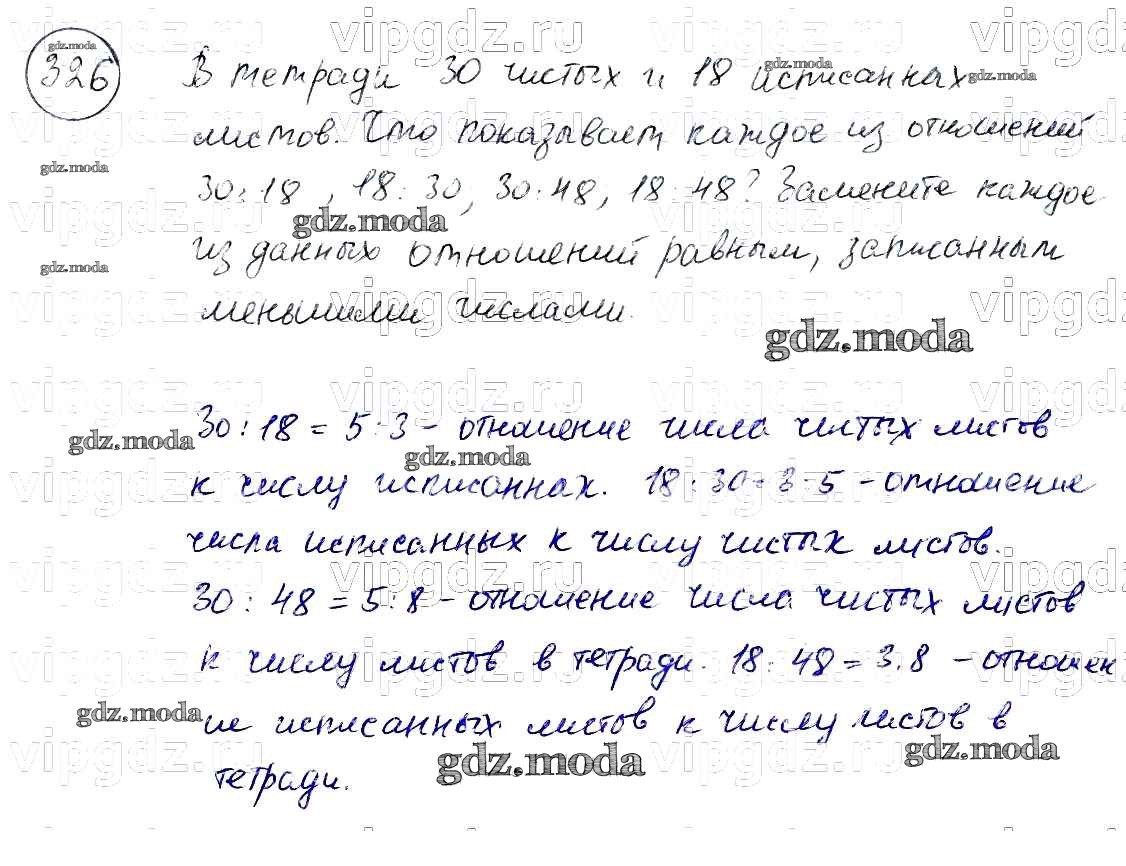 326
В тетради 30 чистых и 18 исписанных
листов. Что показывает каждое из отношений
30:18, 18:30, 30:48, 18:48? Замените каждое
из данных отношений равным, записанным
меньшими числами.
30:18 = 5:3 - отношение числа чистых листов
к числу исписанных. 18:30=3:5 - отношение
числа исписанных к числу чистых листов.
30:48 = 5:8 - отношение числа чистых листов
к числу листов в тетради. 18:48 = 3:8 - отношен
ие исписанных листов к числу листов в
тетради.
gdz.moda
vipgdz.ru